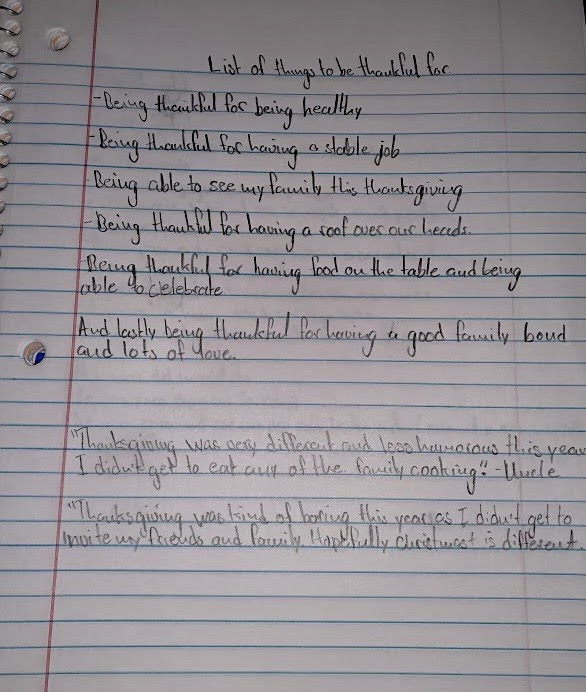 List of things to be thankful for
-Being thankful for being healthy
-Being thankful for having a stable job
Being able to see my family this thanksgiving
-Being thankful for having a roof over our heads.
-Being thankful for having food on the table and being
able to celebrate
And lastly being thankful for having a good family bond
and lots of love.
"Thanksgiving was very different and less humorous this year
I didn't get to eat any of the family cooking." -Uncle
"Thanksgiving was kind of boring this year as I didn't get to
invite my friends and family. Hopefully christmast is different.